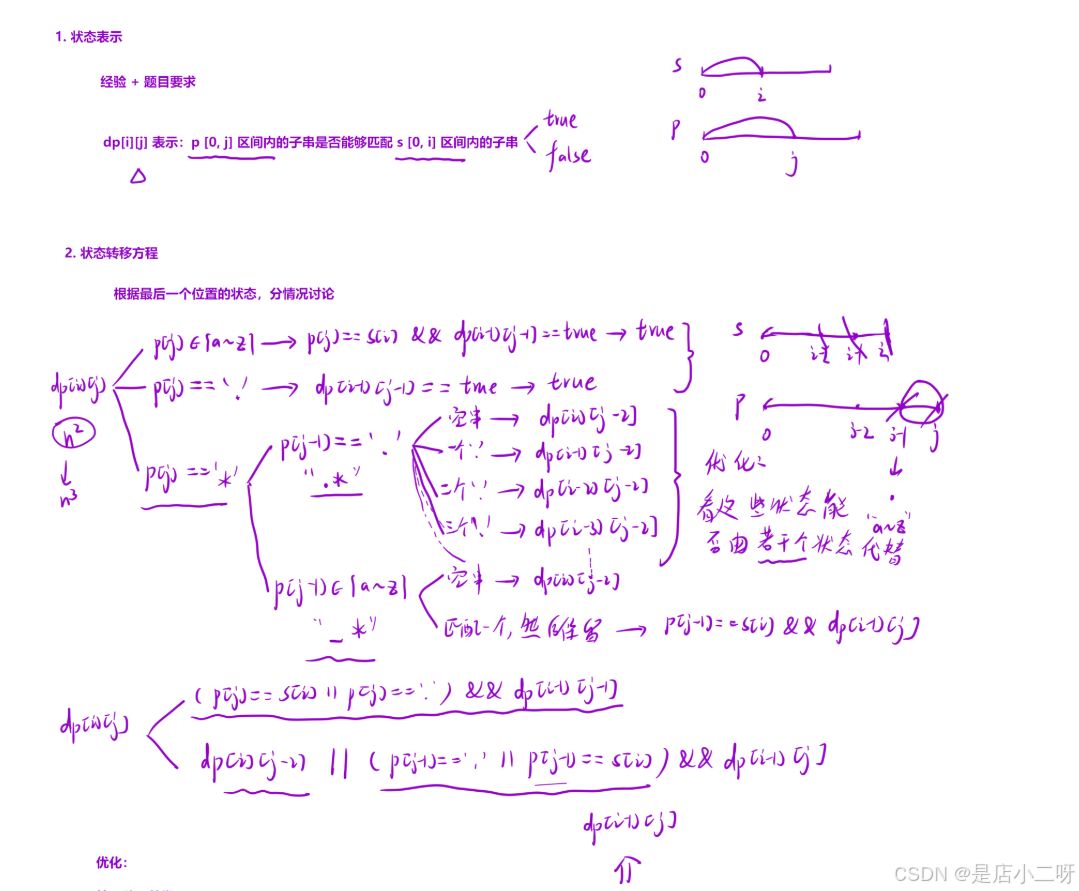 1. 状态表示
经验 + 题目要求
s
0 i
p
0 j
dp[i][j] 表示：p [0, j] 区间内的子串是否能够匹配 s [0, i] 区间内的子串
true
false
2. 状态转移方程
根据最后一个位置的状态，分情况讨论
dp[i][j]
n²
↓
n³
p[j]∈[a~z] → p[j]==s[i] && dp[i-1][j-1]==true → true
p[j]=='.' → dp[i-1][j-1]==true → true
p[j]=='*'
p[j-1]=='.'
".*"
空串 → dp[i][j-2]
一个'.' → dp[i-1][j-2]
二个'.' → dp[i-2][j-2]
三个'.' → dp[i-3][j-2]
p[j-1]∈[a~z]
"_*"
空串 → dp[i][j-2]
匹配一个, 然后保留 → p[j-1]==s[i] && dp[i-1][j]
s
0 i-2 i-1 i
p
0 j-2 j-1 j
↓
.
"a~z"
优化:
看这些状态能
否由若干个状态代替
dp[i][j]
(p[j]==s[i] || p[j]=='.') && dp[i-1][j-1]
dp[i][j-2] || (p[j-1]=='.' || p[j-1]==s[i]) && dp[i-1][j]
dp[i-1][j]
⇑
优化：
CSDN @是店小二呀